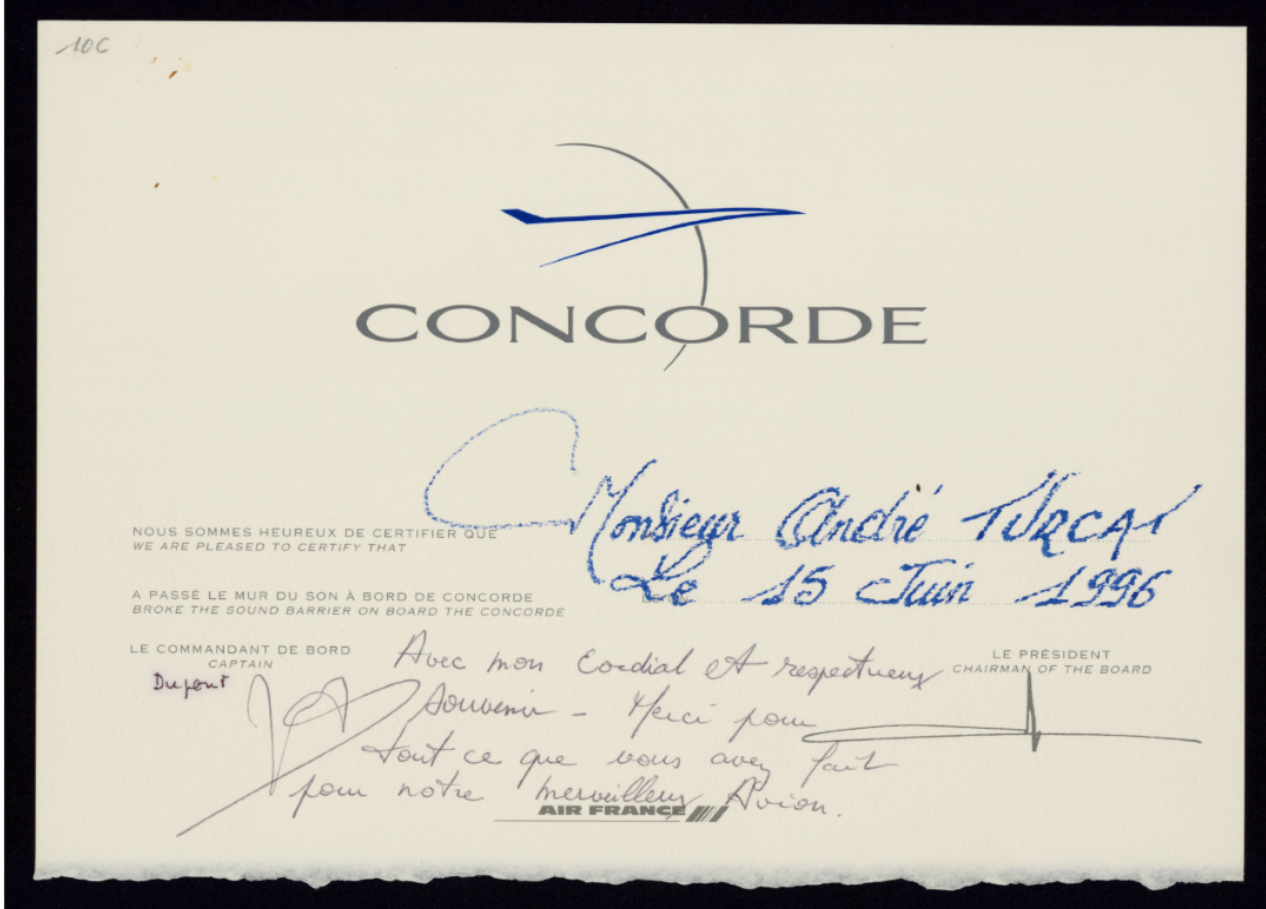 10C
CONCORDE
NOUS SOMMES HEUREUX DE CERTIFIER QUE
WE ARE PLEASED TO CERTIFY THAT
Monsieur André TURCAT
A PASSÉ LE MUR DU SON À BORD DE CONCORDE
BROKE THE SOUND BARRIER ON BOARD THE CONCORDE
Le 15 Juin 1996
LE COMMANDANT DE BORD
CAPTAIN
Dupont
LE PRÉSIDENT
CHAIRMAN OF THE BOARD
Avec mon cordial et respectueux
souvenir - Merci pour
tout ce que vous avez fait
pour notre merveilleux Avion.
AIR FRANCE